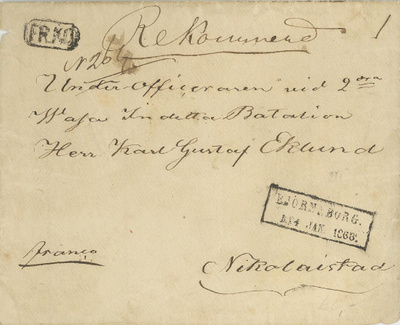 FRKO
Rekommend
1
N 264
Under-Officeraren vid 2dra
Wasa Indelta Batalion
Herr Karl Gustaf Eklund
BJÖRNEBORG.
4 JAN. 1868.
franco
Nikolaistad